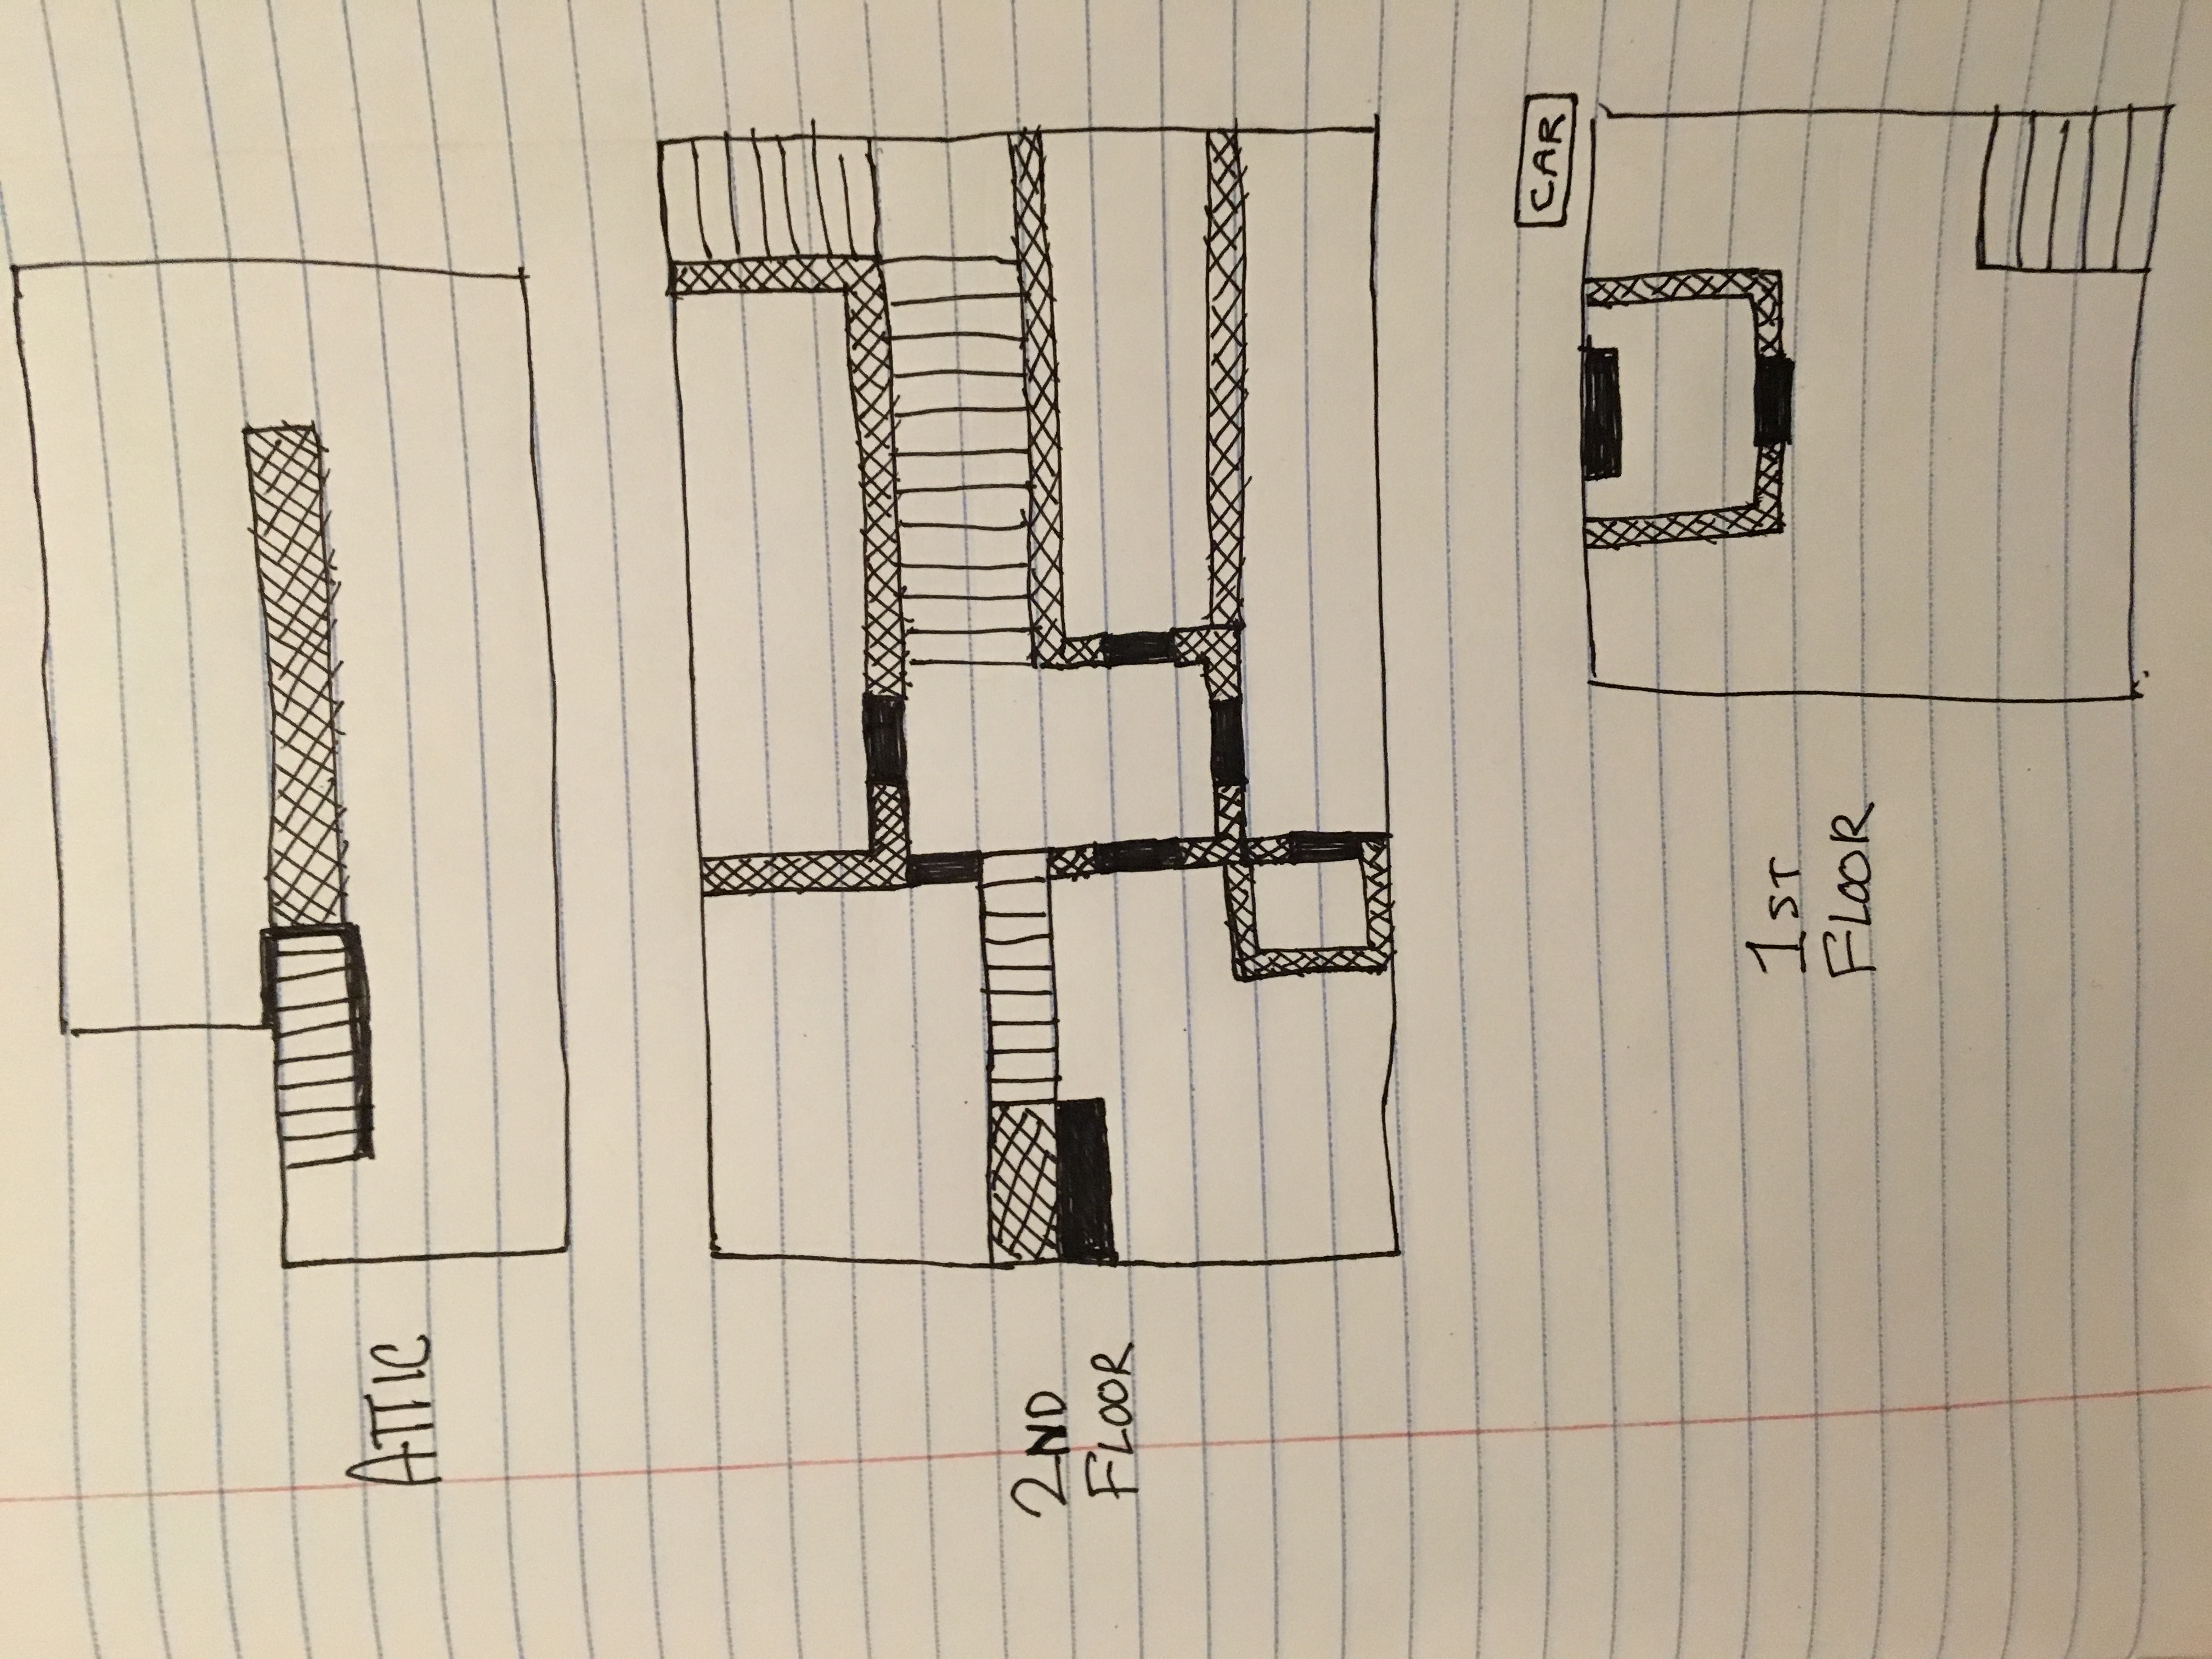 ATTIC
2ND
FLOOR
CAR
1ST
FLOOR